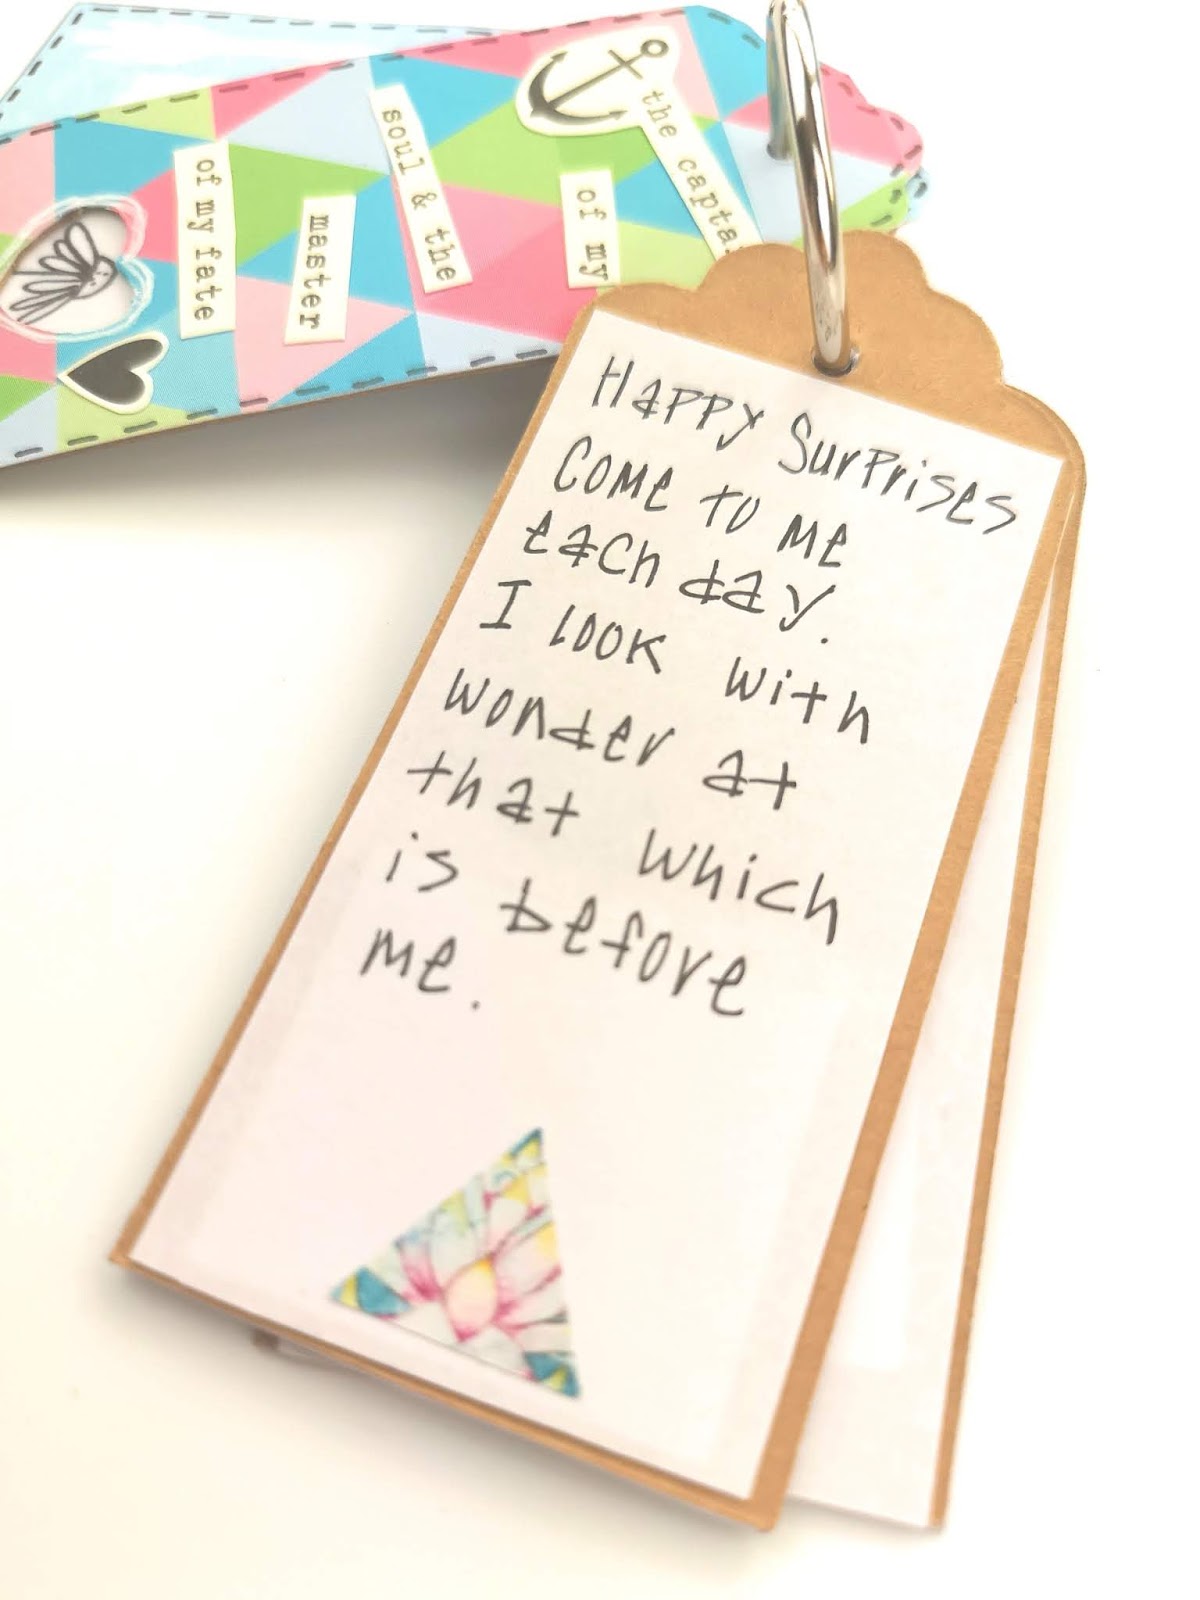 the captai
of my
soul & the
master
of my fate
Happy Surprises
Come to me
each day.
I look with
wonder at
that which
is before
me.